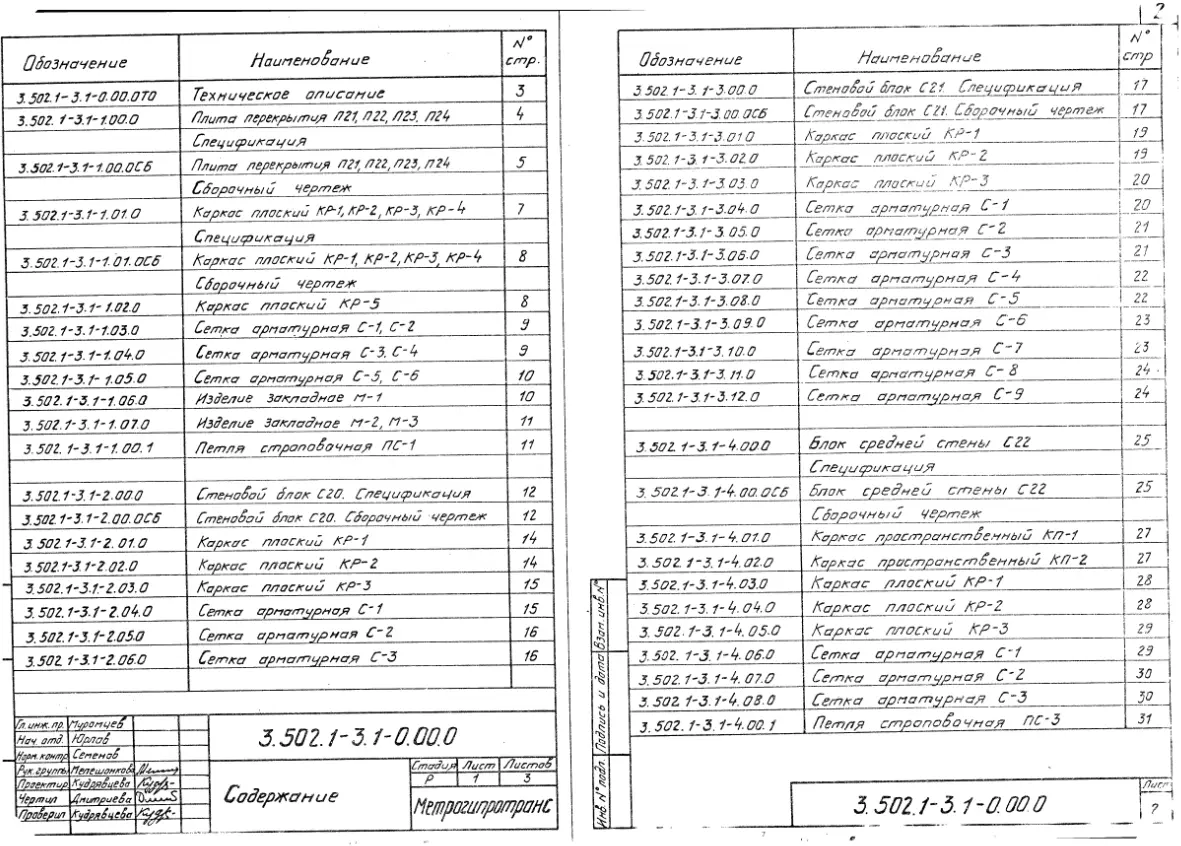 Обозначение Наименование N° стр.
3.502.1-3.1-0.00.0ТО Техническое описание 3
3.502.1-3.1-1.00.0 Плита перекрытия П21, П22, П23, П24 4
Спецификация
3.502.1-3.1-1.00.0СБ Плита перекрытия П21, П22, П23, П24 5
Сборочный чертеж
3.502.1-3.1-1.01.0 Каркас плоский КР-1, КР-2, КР-3, КР-4 7
Спецификация
3.502.1-3.1-1.01.0СБ Каркас плоский КР-1, КР-2, КР-3, КР-4 8
Сборочный чертеж
3.502.1-3.1-1.02.0 Каркас плоский КР-5 8
3.502.1-3.1-1.03.0 Сетка арматурная С-1, С-2 9
3.502.1-3.1-1.04.0 Сетка арматурная С-3, С-4 9
3.502.1-3.1-1.05.0 Сетка арматурная С-5, С-6 10
3.502.1-3.1-1.06.0 Изделие закладное М-1 10
3.502.1-3.1-1.07.0 Изделие закладное М-2, М-3 11
3.502.1-3.1-1.00.1 Петля строповочная ПС-1 11
3.502.1-3.1-2.00.0 Стеновой блок С20. Спецификация 12
3.502.1-3.1-2.00.0СБ Стеновой блок С20. Сборочный чертеж 12
3.502.1-3.1-2.01.0 Каркас плоский КР-1 14
3.502.1-3.1-2.02.0 Каркас плоский КР-2 14
3.502.1-3.1-2.03.0 Каркас плоский КР-3 15
3.502.1-3.1-2.04.0 Сетка арматурная С-1 15
3.502.1-3.1-2.05.0 Сетка арматурная С-2 16
3.502.1-3.1-2.06.0 Сетка арматурная С-3 16
Гл.инж.пр. Муромцев
Нач. отд. Юрлов
Норм.контр Семенов
Рук.группы Мелешонкова
Проектир Кудрявцева
Чертил Дмитриева
Проверил Кудрявцева
3.502.1-3.1-0.00.0
Содержание
Стадия Лист Листов
Р 1 3
Метрогипротранс
2
Обозначение Наименование N° стр
3.502.1-3.1-3.00.0 Стеновой блок С21. Спецификация 17
3.502.1-3.1-3.00.0СБ Стеновой блок С21. Сборочный чертеж 17
3.502.1-3.1-3.01.0 Каркас плоский КР-1 19
3.502.1-3.1-3.02.0 Каркас плоский КР-2 19
3.502.1-3.1-3.03.0 Каркас плоский КР-3 20
3.502.1-3.1-3.04.0 Сетка арматурная С-1 20
3.502.1-3.1-3.05.0 Сетка арматурная С-2 21
3.502.1-3.1-3.06.0 Сетка арматурная С-3 21
3.502.1-3.1-3.07.0 Сетка арматурная С-4 22
3.502.1-3.1-3.08.0 Сетка арматурная С-5 22
3.502.1-3.1-3.09.0 Сетка арматурная С-6 23
3.502.1-3.1-3.10.0 Сетка арматурная С-7 23
3.502.1-3.1-3.11.0 Сетка арматурная С-8 24
3.502.1-3.1-3.12.0 Сетка арматурная С-9 24
3.502.1-3.1-4.00.0 Блок средней стены С22 25
Спецификация
3.502.1-3.1-4.00.0СБ Блок средней стены С22 25
Сборочный чертеж
3.502.1-3.1-4.01.0 Каркас пространственный КП-1 27
3.502.1-3.1-4.02.0 Каркас пространственный КП-2 27
3.502.1-3.1-4.03.0 Каркас плоский КР-1 28
3.502.1-3.1-4.04.0 Каркас плоский КР-2 28
3.502.1-3.1-4.05.0 Каркас плоский КР-3 29
3.502.1-3.1-4.06.0 Сетка арматурная С-1 29
3.502.1-3.1-4.07.0 Сетка арматурная С-2 30
3.502.1-3.1-4.08.0 Сетка арматурная С-3 30
3.502.1-3.1-4.00.1 Петля строповочная ПС-3 31
Инв.N°подл. Подпись и дата Взам.инв.N°
3.502.1-3.1-0.00.0
Лист
2